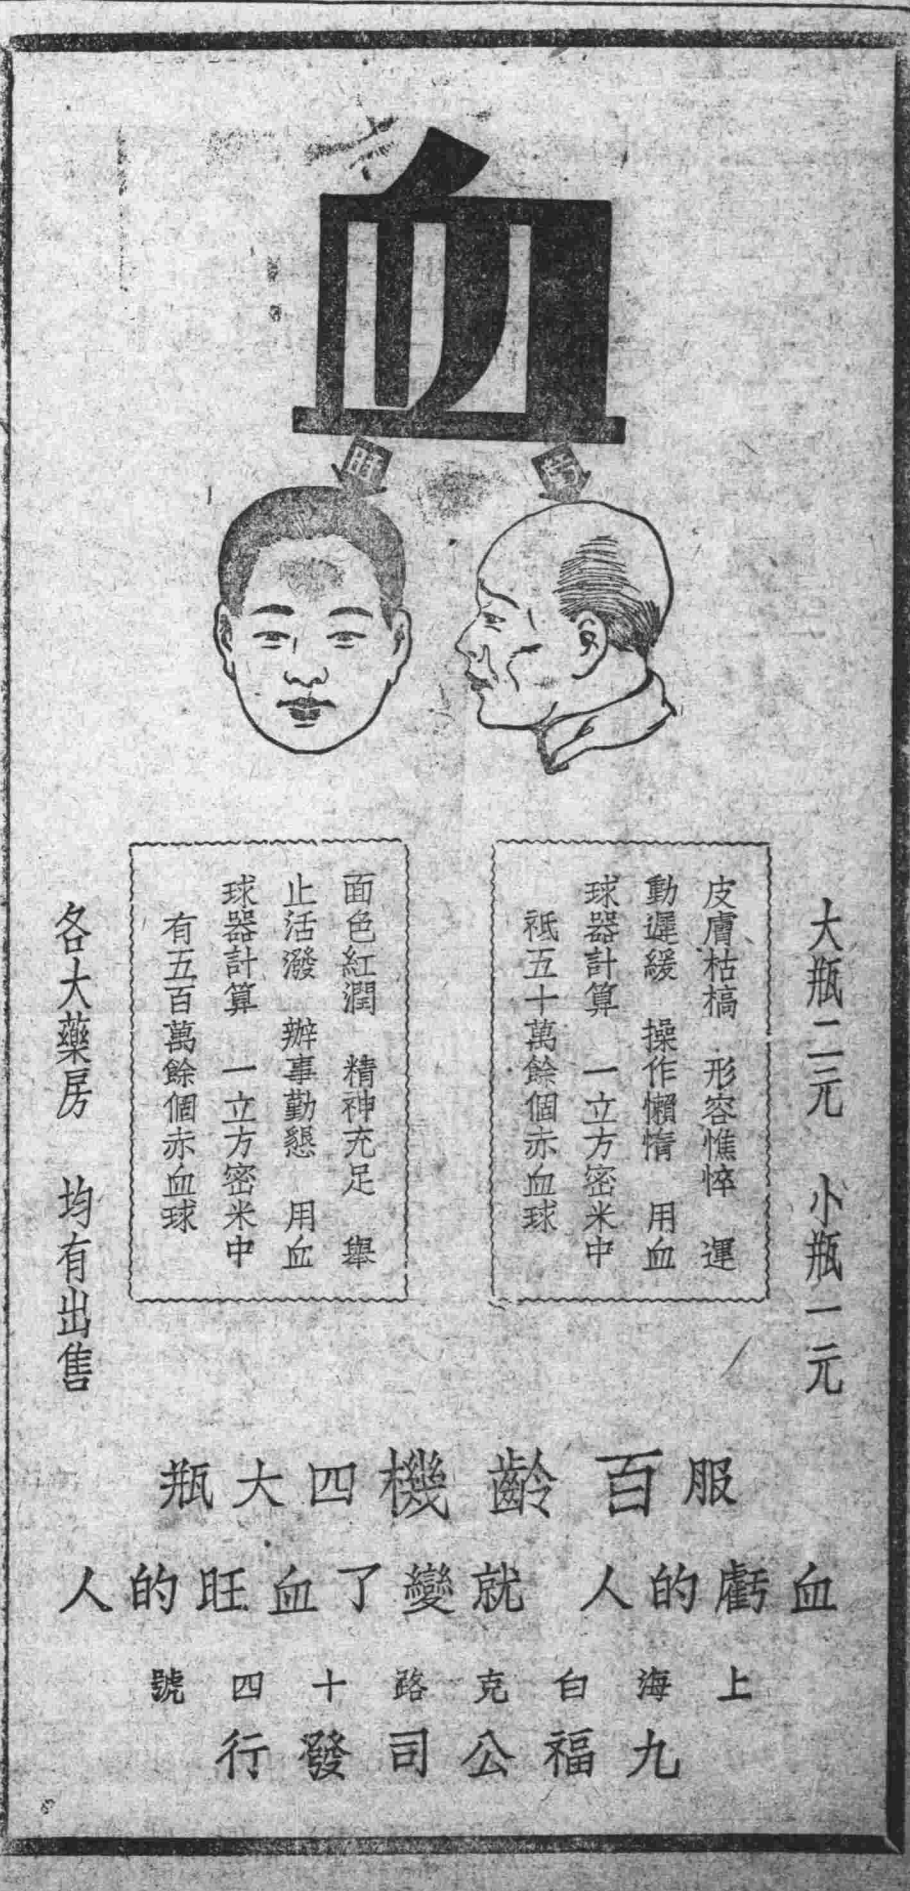 血
旺
大瓶二元 小瓶一元
皮膚枯槁 形容憔悴 運
動遲緩 操作懶惰 用血
球器計算 一立方密米中
祗五十萬餘個赤血球
面色紅潤 精神充足 舉
止活潑 辦事勤懇 用血
球器計算 一立方密米中
有五百萬餘個赤血球
各大藥房 均有出售
服百齡機四大瓶
血虧的人 就變了血旺的人
上海白克路十四號
九福公司發行